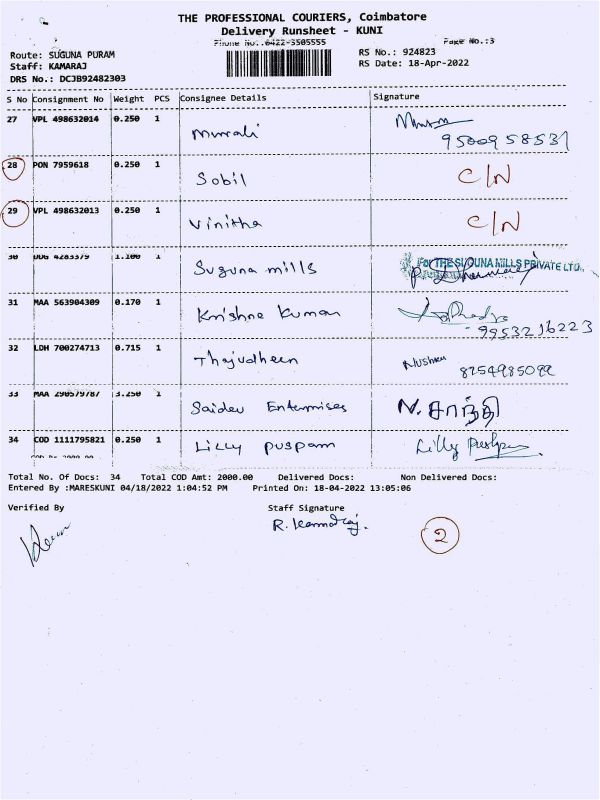 THE PROFESSIONAL COURIERS, Coimbatore
Delivery Runsheet - KUNI
Phone No.:0422-3505555 Page No.:3
Route: SUGUNA PURAM RS No.: 924823
Staff: KAMARAJ RS Date: 18-Apr-2022
DRS No.: DCJB92482303
S No Consignment No Weight PCS Consignee Details Signature
27 VPL 498632014 0.250 1 Murali
9500958531
28 PON 7959618 0.250 1 Sobil C/N
29 VPL 498632013 0.250 1 Vinitha C/N
30 4283379 1.100 1 Suguna mills For THE SUGUNA MILLS PRIVATE LTD.,
31 MAA 563904309 0.170 1 Krishne Kumar
9953216223
32 LDH 700274713 0.715 1 Thajudheen
8754985099
33 MAA 290579787 3.250 1 Saidev Entermises N. சாந்தி
34 COD 1111795821 0.250 1 Lilly puspam Lilly
COD Rs 2000.00
Total No. Of Docs: 34 Total COD Amt: 2000.00 Delivered Docs: Non Delivered Docs:
Entered By :MARESKUNI 04/18/2022 1:04:52 PM Printed On: 18-04-2022 13:05:06
Verified By Staff Signature
R. Kamaraj.
2